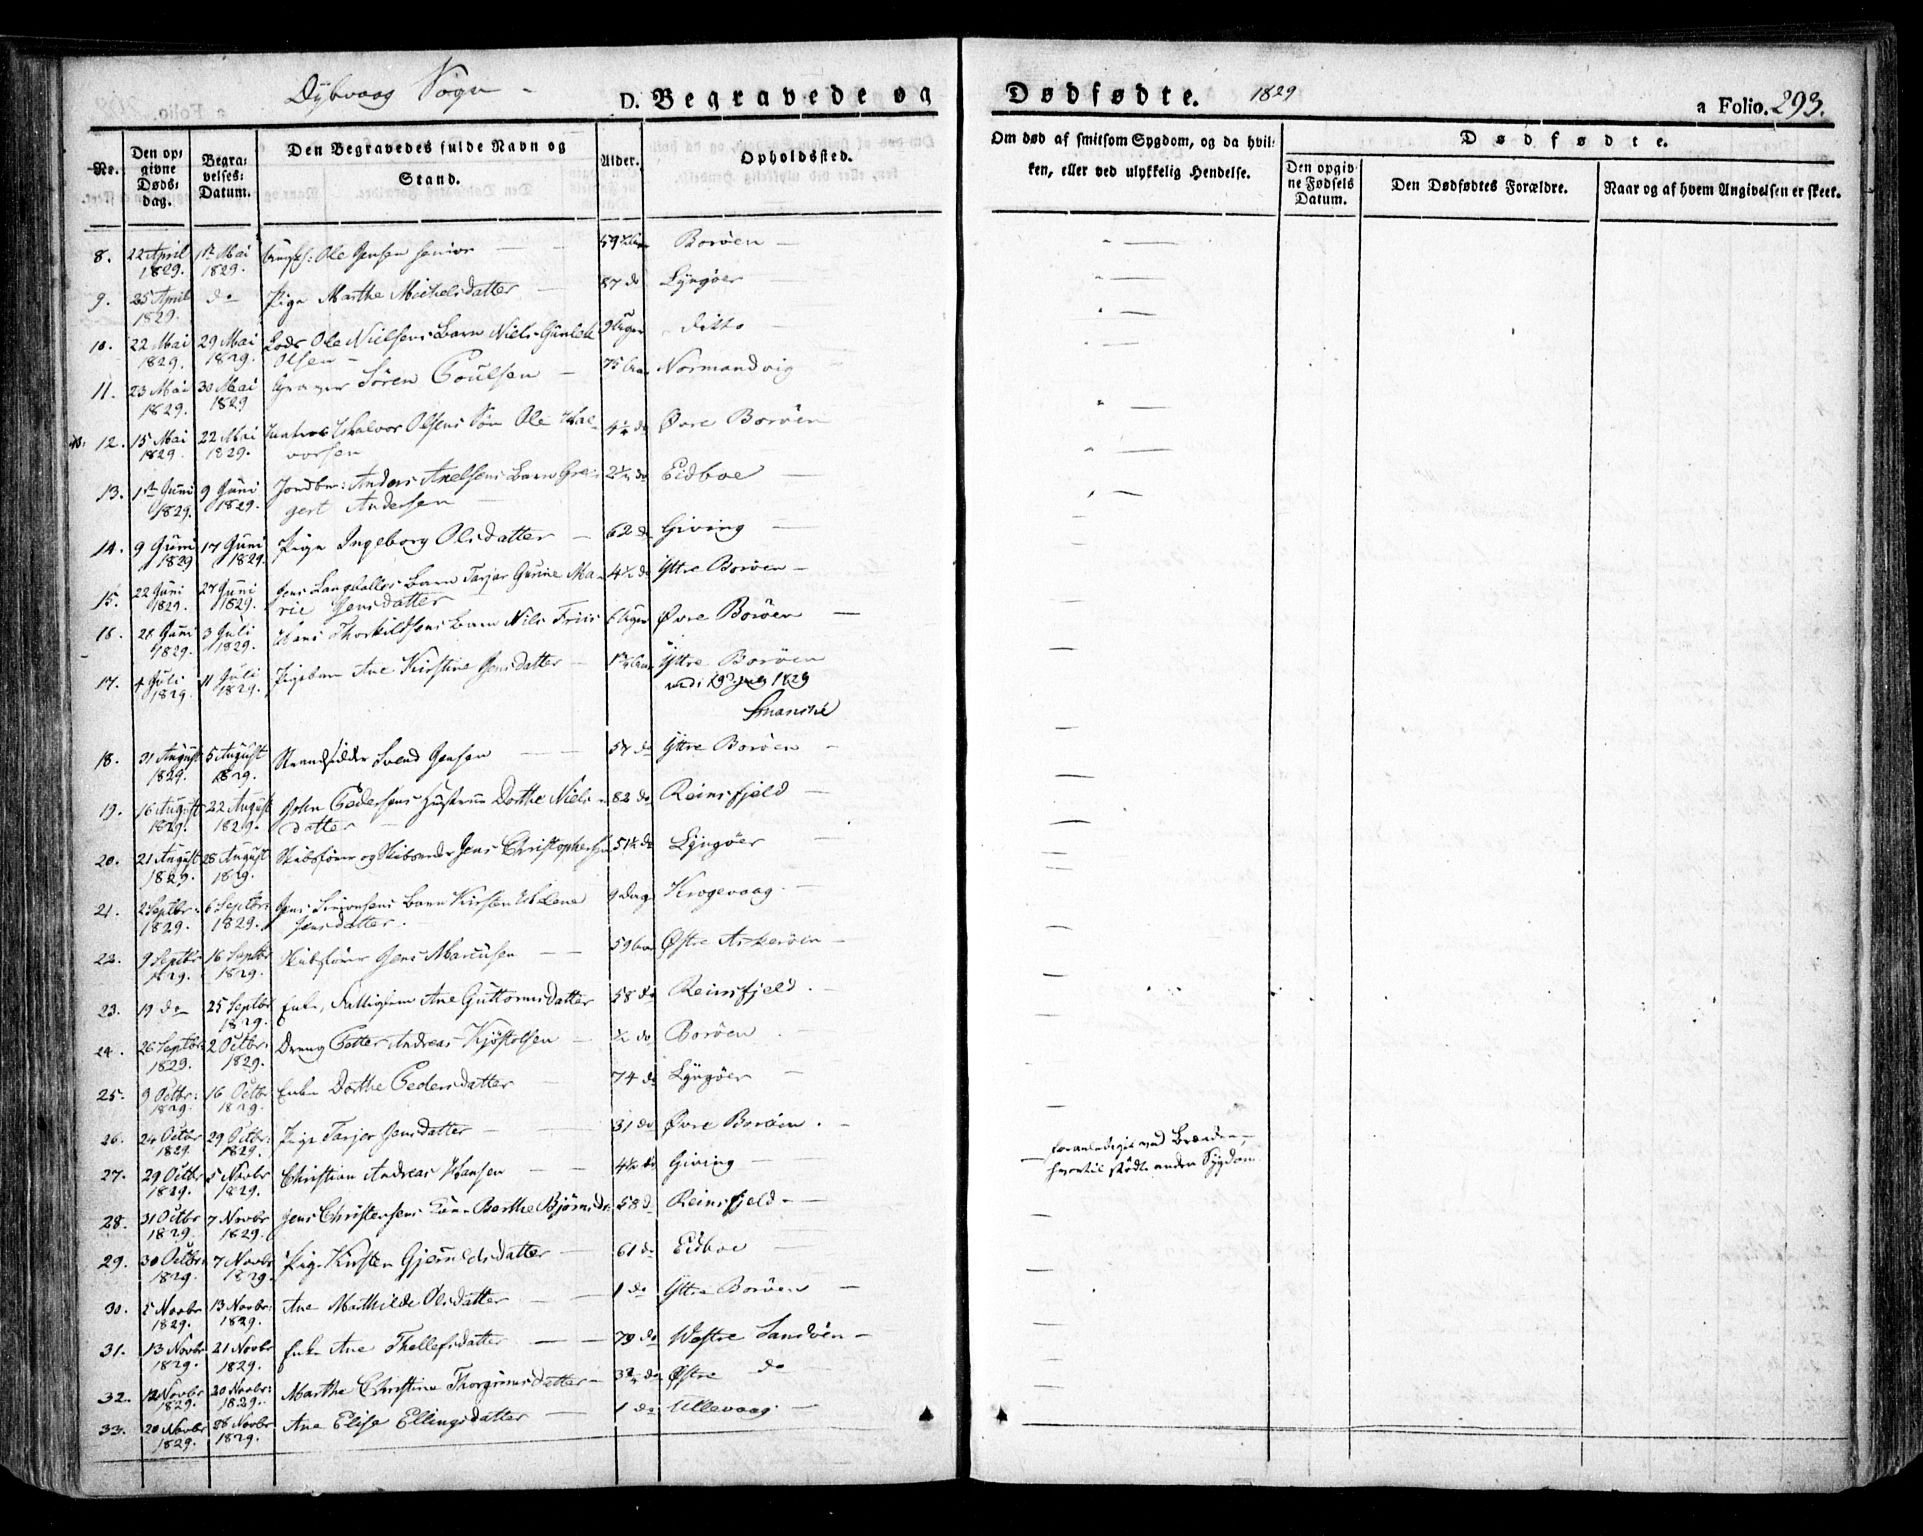 Dybvaag Sogn -
D. Begravede og Dødfødte. 1829
a Folio. 293.
No. Den opgivne Dødsdag. Begravelses-Datum. Den Begravedes fulde Navn og Stand. Alder. Opholdssted.
Om død af smitsom Sygdom, og da hvilken, eller ved ulykkelig Hendelse. Dødfødte. Den opgivne Fødsels Datum. Den Dødfødtes Forældre. Naar og af hvem Angivelsen er skeet.
8. 22 April 1829. 1ste Mai 1829. Ole Jensen senior 59 Borøen
9. 25 April 1829. do Pige Marthe Michelsdatter 87 do Lyngøer
10. 22 Mai 1829. 29 Mai 1829. Lods Ole Nielsens Barn Niels Gunleik
Olsen 9 Uger Ditto
11. 23 Mai 1829. 30 Mai 1829 Søren Poulsen 75 Aar Normandvig
12. 15 Mai 1829. 22 Mai 1829. Halvor Olsens Søn Ole Hal-
vorsen 4¼ do Øvre Borøen
13. 1ste Juni 1829. 9 Juni 1829. Jordbr: Anders Axelsens Barn Gre-
gert Andersen 2½ do Eidboe
14. 9 Juni 1829 17 Juni 1829. Pige Ingeborg Olsdatter 62 do Giving
15. 22 Juni 1829. 27 Juni 1829. Jens Langballes Barn Tarjer Gurine Ma-
rie Jensdatter 4½ do Yttre Borøen
16. 28 Juni 1829. 3 Juli 1829. Hans Thorkildsens Barn Nils Friis 6 Uger Øvre Borøen
17. 4 Juli 1829. 11 Juli 1829. Pigebarn Ane Kirstine Jensdatter Yttre Borøen
1829
18. 31 August 1829. 5 August 1829. Strandsidder Svend Jensen 57 do Yttre Borøen
19. 16 August 1829. 22 August 1829. John Pedersens Hustrue Dorthe Niels-
datter 82 do Reinsfjeld
20. 21 August 1829. 28 August 1829. Skibsfører og Skibsreder Jens Christophersen 51½ do Lyngøer
21. 2 Septbr: 1829. 6 Septbr: 1829. Jens Simonsens Barn Kirsten Helene
Jensdatter. 9 Dage Krogevaag.
22. 9 Septbr 1829. 16 Septbr 1829. Skibsfører Jens Marcusen 59 Aar Østre Askerøen
23. 19 do 25 Septbr 1829. Enke, Fattiglem Ane Guttormsdatter 58 do Reinsfjeld.
24. 26 Septbr: 1829. 2 Octbr: 1829. Dreng Petter Andreas Kjøstolsen ½ do Borøen
25. 9 Octbr: 1829. 16 Octbr: 1829. Enke Dorthe Pedersdatter 74 do Lyngøer
26. 24 Octbr 1829. 29 Octbr: 1829. Pige Tarjer Jensdatter 31 do Øvre Borøen.
27. 29 Octbr 1829. 5 Novbr 1829. Christian Andreas Hansen 4½ do Giving foranlediget ved Brænden,
hvortil stødte anden Sygdom.
28. 31 Octbr 1829. 7 Novbr 1829. Jens Christensens Kone Berthe Bjørnsdr. 58 do Reinsfjeld
29. 30 Octbr: 1829. 7 Novbr 1829. Pige Kirsten Gjeruldsdatter 61 do Eidboe
30. 5 Novbr 1829. 13 Novbr: 1829. Ane Mathilde Olsdatter 1 do Yttre Borøen
31. 13 Novbr 1829. 21 Novbr 1829. Enke Ane Thellefsdatter 79 do Westre Sandøen
32. 12 Novbr 1829. 20 Novbr: 1829. Marthe Christine Thorgrimsdatter do Østre do
33. 20 Novbr 1829. 28 Novbr 1829. Ane Elise Ellingsdatter 1 do Ullevaag.